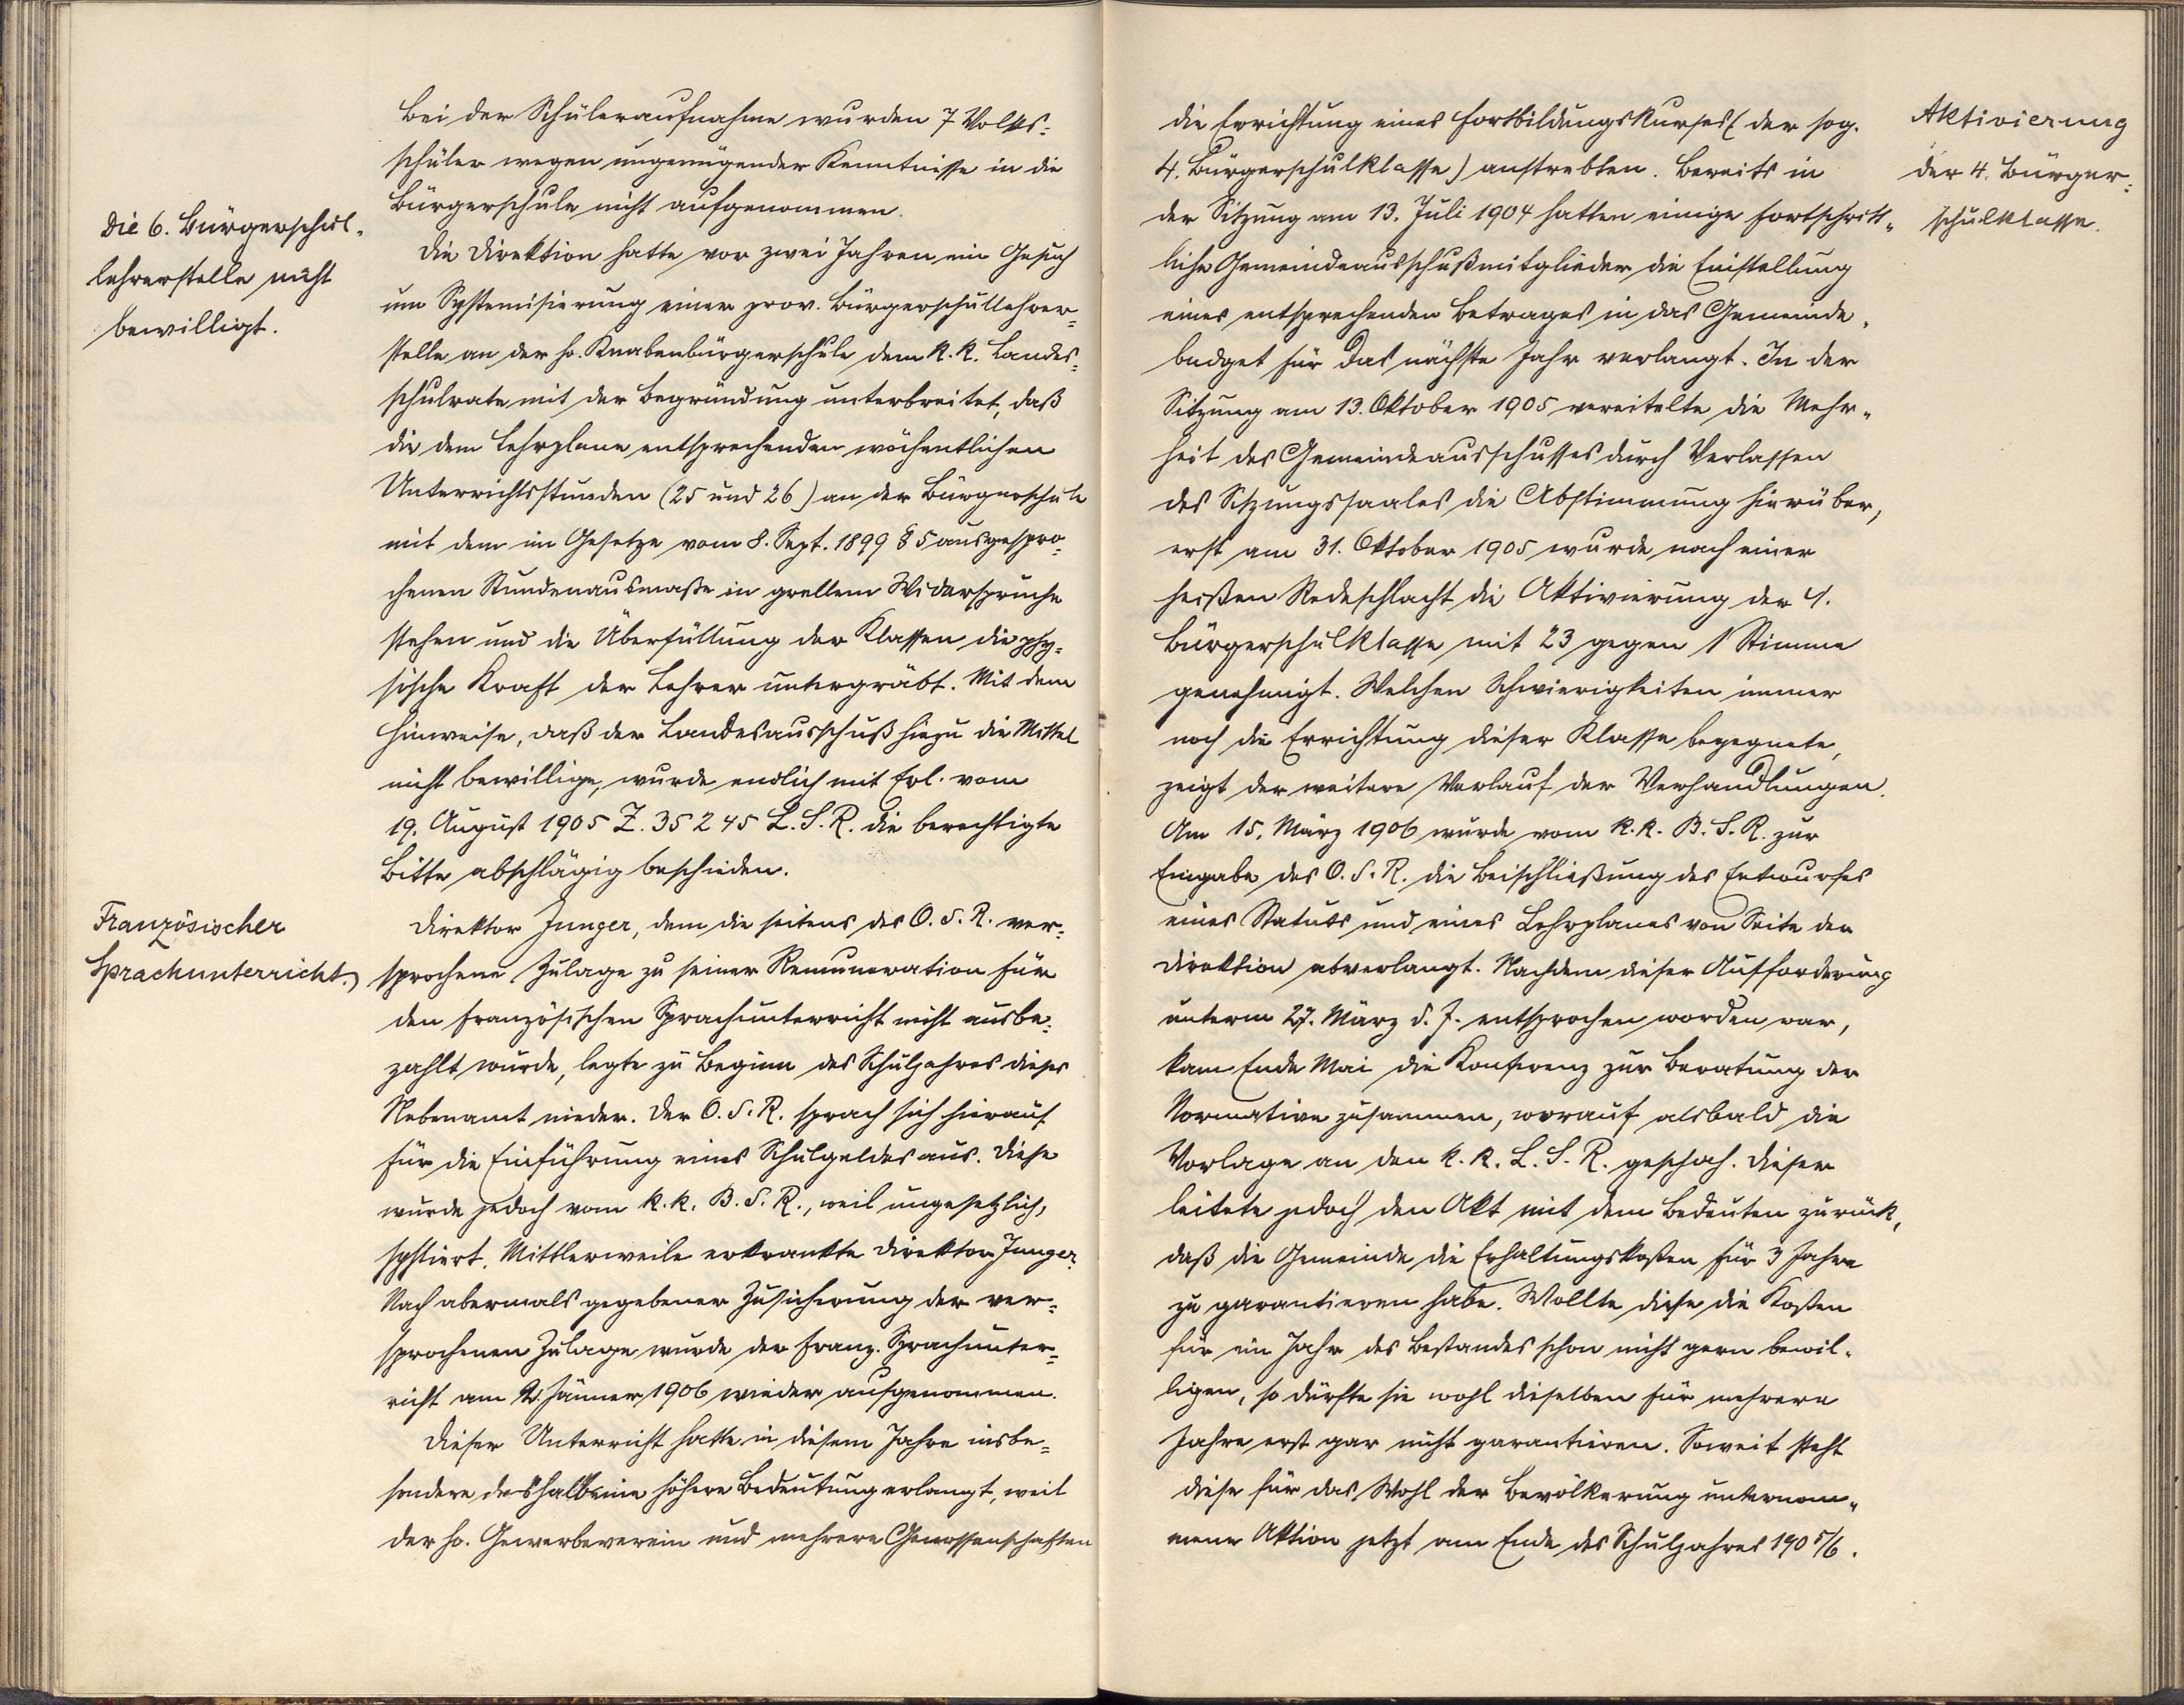 Bei der Schüleraufnahme wurden 7 Volks-
schüler wegen ungenügender Kenntnisse in die
Bürgerschule nicht aufgenommen.
Die 6. Bürgerschul-
lehrerstelle nicht
bewilligt.
Die Direktion hatte vor zwei Jahren ein Gesuch
um Systemisierung einer prov. Bürgerschullehrer-
stelle an der ho. Knabenbürgerschule dem k. k. Landes-
schulrate mit der Begründung unterbreitet, daß
die dem Lehrplane entsprechenden wöchentlichen
Unterrichtsstunden (25 und 26) an der Bürgerschule
mit dem im Gesetze vom 8. Sept. 1899 § 5 ausgespro-
chenen Stundenausmaße in grellem Widerspruche
stehen und die Überfüllung der Klassen die phy-
sische Kraft der Lehrer untergräbt. Mit dem
Hinweise, daß der Landesausschuß hiezu die Mittel
nicht bewillige, wurde endlich mit Erl. vom
19. August 1905 Z. 35245 L. S. R. die berechtigte
Bitte abschlägig beschieden.
Französischer
Sprachunterricht.
Direktor Junger, dem die seitens des O. S. R. ver-
sprochene Zulage zu seiner Remuneration für
den französischen Sprachunterricht nicht ausbe-
zahlt wurde, legte zu Beginn des Schuljahres dieses
Nebenamt nieder. Der O. S. R. sprach sich hierauf
für die Einführung eines Schulgeldes aus. Diese
wurde jedoch vom k. k. B. S. R., weil ungesetzlich,
sistiert. Mittlerweile erkrankte Direktor Junger.
Nach abermals gegebener Zusicherung der ver-
sprochenen Zulage wurde der franz. Sprachunter-
richt am Jänner 1906 wieder aufgenommen.
Dieser Unterricht hatte in diesem Jahre insbe-
sondere deshalb eine höhere Bedeutung erlangt, weil
der ho. Gewerbeverein und mehrere Genossenschaften
die Errichtung eines Fortbildungskurses (der sog.
4. Bürgerschulklasse) anstrebten. Bereits in
der Sitzung am 13. Juli 1904 hatten einige fortschritt-
liche Gemeindeausschußmitglieder die Einstellung
eines entsprechenden Betrages in das Gemeinde-
budget für das nächste Jahr verlangt. In der
Sitzung am 13. Oktober 1905 vereitelte die Mehr-
heit des Gemeindeausschusses durch Verlassen
des Sitzungssaales die Abstimmung hierüber,
erst am 31. Oktober 1905 wurde nach einer
heißen Redeschlacht die Aktivierung der 4.
Bürgerschulklasse mit 23 gegen 1 Stimme
genehmigt. Welchen Schwierigkeiten immer
noch die Errichtung dieser Klasse begegnete,
zeigt der weitere Verlauf der Verhandlungen.
Am 15. März 1906 wurde vom k. k. B. S. R. zur
Eingabe des O. S. R. die Beischließung des Entwurfes
eines Statuts und eines Lehrplanes von Seite der
Direktion abverlangt. Nachdem dieser Aufforderung
unterm 27. März d. J. entsprochen worden war,
kam Ende Mai die Konferenz zur Beratung der
Normative zusammen, worauf alsbald die
Vorlage an den k. k. L. S. R. geschah. Dieser
leitete jedoch den Akt mit dem Bedeuten zurück,
daß die Gemeinde die Erhaltungskosten für 3 Jahre
zu garantieren habe. Wollte diese die Kosten
für ein Jahr des Bestandes schon nicht gern bewil-
ligen, so dürfte sie wohl dieselben für mehrere
Jahre erst gar nicht garantieren. Soweit steht
diese für das Wohl der Bevölkerung unternom-
mene Aktion jetzt am Ende des Schuljahres 1905/6.
Aktivierung
der 4. Bürger-
schulklasse.